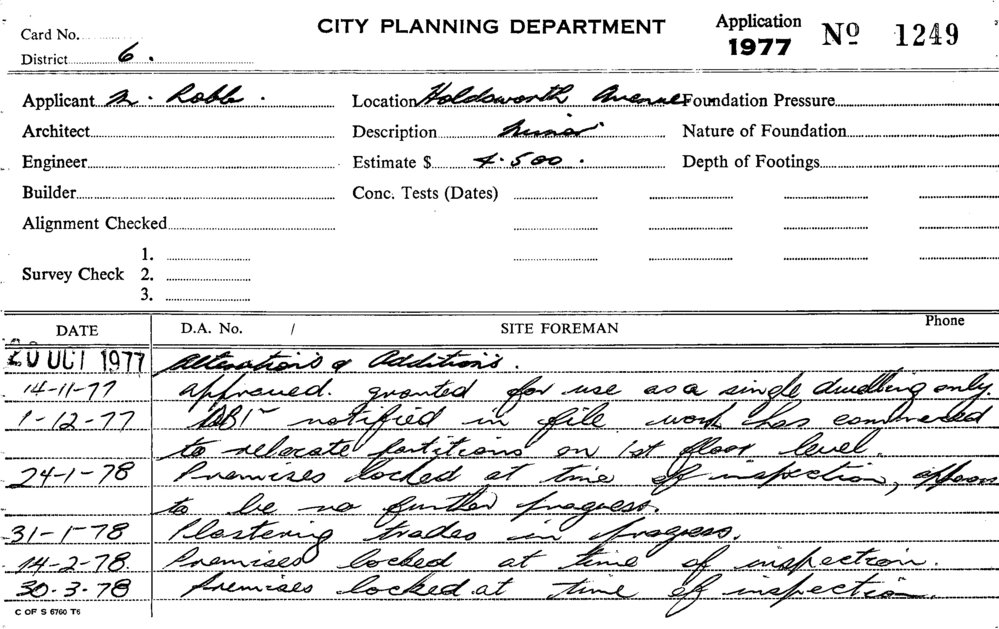 CITY PLANNING DEPARTMENT
Application
1977 Nº 1249
Card No.
District 6.
Applicant M. Robb. Location Holdsworth Avenue Foundation Pressure
Architect Description Minor Nature of Foundation
Engineer Estimate $ 4.500. Depth of Footings
Builder Conc. Tests (Dates)
Alignment Checked
1.
Survey Check 2.
3.
DATE D.A. No. / SITE FOREMAN Phone
20 OCT 1977 Alterations & Additions.
14-11-77 approved. granted for use as a single dwelling only.
1-12-77 notified in file work has commenced
to relocate partitions on 1st floor level.
24-1-78 Premises locked at time of inspection, appears
to be no further progress.
31-1-78 Plastering trades in progress.
14-2-78. Premises locked at time of inspection.
30.3.78 Premises locked at time of inspection.
C OF S 6760 T6